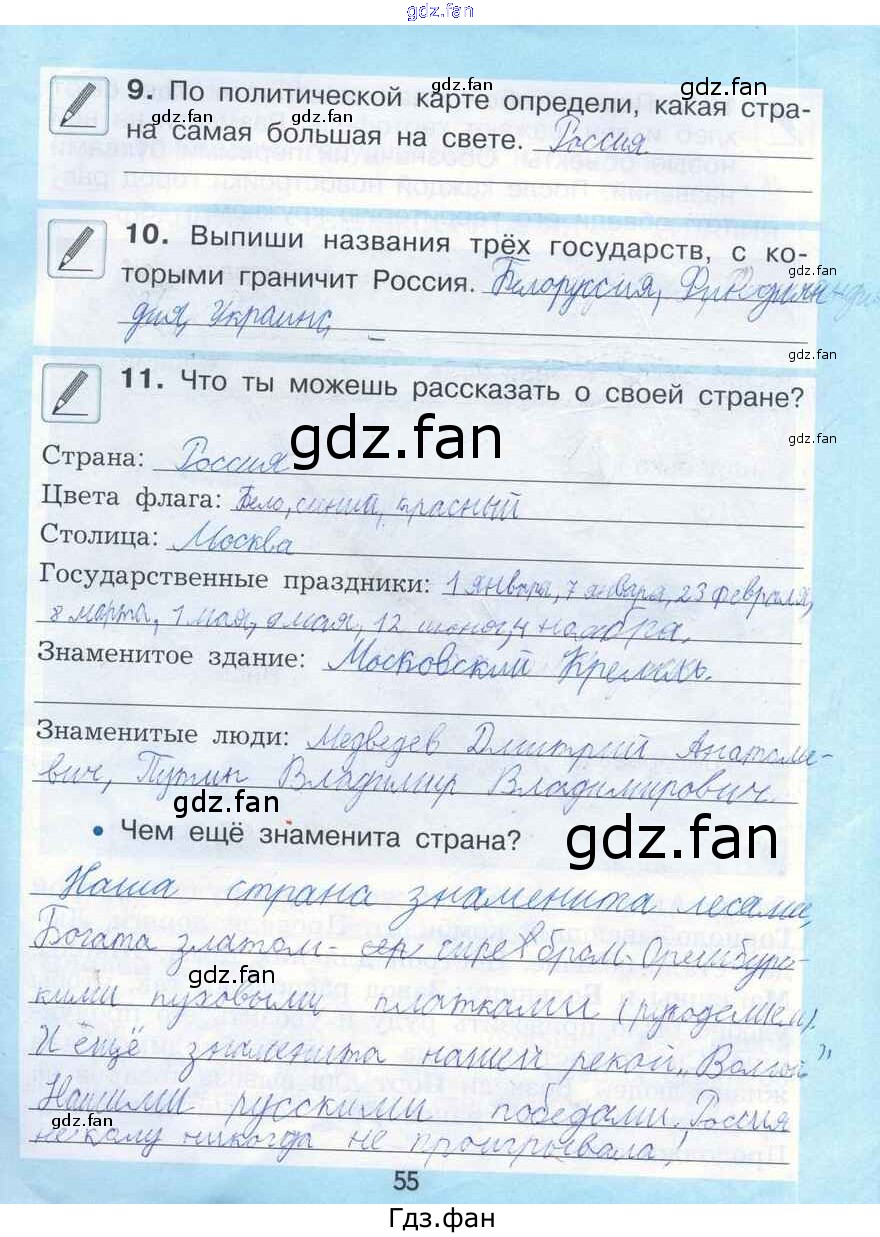 gdz.fan
9. По политической карте определи, какая стра-
gdz.fan
gdz.fan
на самая большая на свете. Россия
gdz.fan
gdz.fan
10. Выпиши названия трёх государств, с ко-
торыми граничит Россия. Белоруссия, Финдлян
gdz.fan
дия, Украина
gdz.fan
11. Что ты можешь рассказать о своей стране?
gdz.fan
gdz.fan
Страна: Россия
Цвета флага: Бело, синий, красный
Столица: Москва
Государственные праздники: 1 января, 7 января, 23 февраля,
8 марта, 1 мая, 9 мая, 12 июня, 4 ноября.
Знаменитое здание: Московский Кремль.
Знаменитые люди: Медведев Дмитрий Анатоль-
евич, Путин Владимир Владимирович
gdz.fan
• Чем ещё знаменита страна?
gdz.fan
Наша страна знаменита лесами,
Богата златом- серебром. Оренбург-
gdz.fan
кими пуховыми платками (рукоделием).
И ещё знаменита нашей рекой „Волгой"
Нашими русскими победами. Россия
gdz.fan
не кому никогда не проигрывала!
55
Гдз.фан